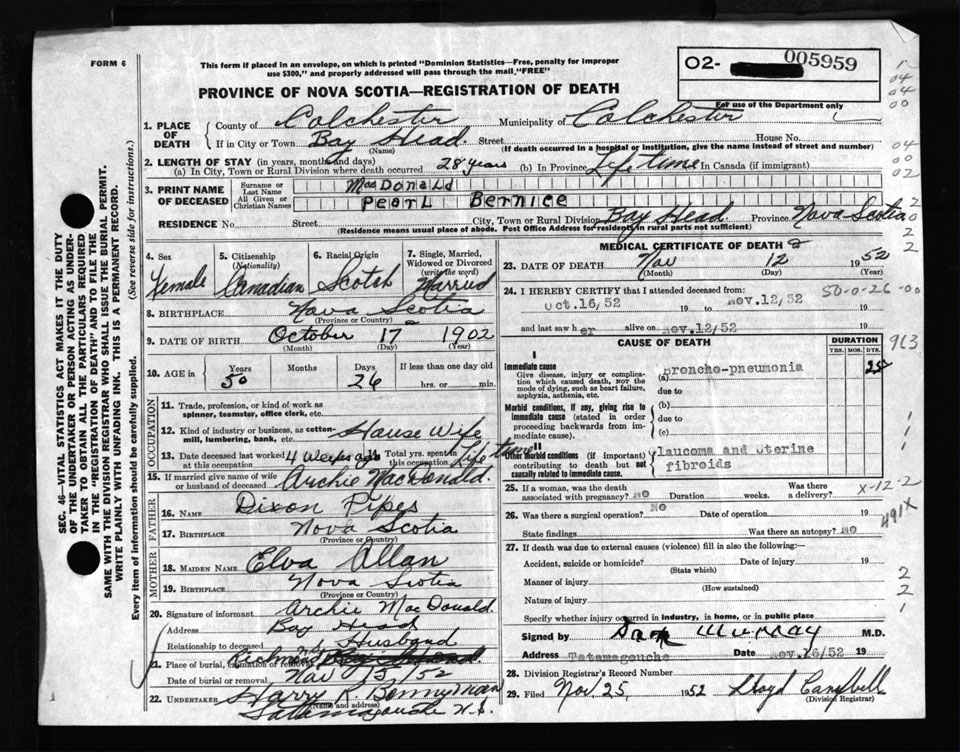 FORM 6
This form if placed in an envelope, on which is printed "Dominion Statistics—Free, penalty for improper
use $300," and properly addressed will pass through the mail "FREE"
O2- 005959
For use of the Department only
PROVINCE OF NOVA SCOTIA—REGISTRATION OF DEATH
1. PLACE OF DEATH { County of Colchester Municipality of Colchester
If in City or Town Bay Head. Street House No.
(Name) (If death occurred in a hospital or institution, give the name instead of street and number)
2. LENGTH OF STAY (in years, months and days)
(a) In City, Town or Rural Division where death occurred 28 years (b) In Province Life time In Canada (if immigrant)
3. PRINT NAME OF DECEASED { Surname or Last Name MacDonald
All Given or Christian Names Pearl Bernice
RESIDENCE No. Street City, Town or Rural Division Bay Head Province Nova Scotia
(Residence means usual place of abode. Post Office Address for residents in rural parts not sufficient)
4. Sex Female
5. Citizenship (Nationality) Canadian
6. Racial Origin Scotch
7. Single, Married, Widowed or Divorced (write the word) Married
8. BIRTHPLACE Nova Scotia
(Province or Country)
9. DATE OF BIRTH October 17 1902
(Month) (Day) (Year)
10. AGE in { Years 50 Months Days 26 If less than one day old
hrs. or min.
OCCUPATION
11. Trade, profession, or kind of work as
spinner, teamster, office clerk, etc.
12. Kind of industry or business, as cotton-
mill, lumbering, bank, etc. House Wife
13. Date deceased last worked at this occupation 4 weeks ago 14. Total yrs. spent in this occupation Life time
15. If married give name of wife or husband of deceased Archie MacDonald.
FATHER
16. NAME Dixon Pipes
17. BIRTHPLACE Nova Scotia
(Province or Country)
MOTHER
18. MAIDEN NAME Elva Allan
19. BIRTHPLACE Nova Scotia
(Province or Country)
20. Signature of informant Archie MacDonald
Address Bay Head
Relationship to deceased Husband
21. Place of burial, cremation or removal
Date of burial or removal Nov 15/52
22. UNDERTAKER Harry R. Bonnyman
(Name and address)
Tatamagouche N.S.
MEDICAL CERTIFICATE OF DEATH
23. DATE OF DEATH Nov 12 1952
(Month) (Day) (Year)
24. I HEREBY CERTIFY that I attended deceased from:
Oct.16/52 19 to Nov.12/52 19
50-0-26-00
and last saw her alive on Nov.12/52 19
CAUSE OF DEATH
DURATION
YRS. MOS. DYS.
963
I
Immediate cause
Give disease, injury or complication which caused death, NOT the mode of dying, such as heart failure, asphyxia, asthenia, etc.
(a) Broncho-pneumonia 25
due to
Morbid conditions, if any, giving rise to immediate cause (stated in order proceeding backwards from immediate cause).
(b)
due to
(c)
II
Other morbid conditions (if important) contributing to death but not causally related to immediate cause.
laucoma and uterine
fibroids
25. If a woman, was the death associated with pregnancy? NO Duration weeks. Was there a delivery?
X-12-2
26. Was there a surgical operation? No Date of operation 19
491X
State findings Was there an autopsy? NO
27. If death was due to external causes (violence) fill in also the following:—
Accident, suicide or homicide? Date of injury 19
(State which)
Manner of injury
(How sustained)
Nature of injury
Specify whether injury occurred in industry, in home, or in public place
Signed by Dan Murray M.D.
Address Tatamagouche Date Nov.16/52 19
28. Division Registrar's Record Number
29. Filed Nov 25, 1952 Lloyd Campbell
(Division Registrar)
SEC. 46—VITAL STATISTICS ACT MAKES IT THE DUTY
OF THE UNDERTAKER OR PERSON ACTING AS UNDER-
TAKER TO OBTAIN ALL THE PARTICULARS REQUIRED
IN THE "REGISTRATION OF DEATH" AND TO FILE THE
SAME WITH THE DIVISION REGISTRAR WHO SHALL ISSUE THE BURIAL PERMIT.
WRITE PLAINLY WITH UNFADING INK. THIS IS A PERMANENT RECORD.
Every item of information should be carefully supplied. (See reverse side for instructions.)